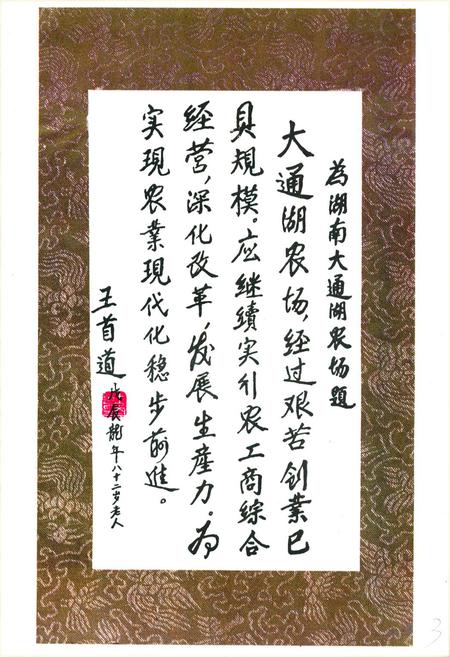 为湖南大通湖农场题
大通湖农场，经过艰苦创業已
具规模。应继續实引农工商綜合
经营，深化改革，发展生産力。为
实現农業現代化稳步前進。
王首道
戊辰龍年八十二岁老人
3